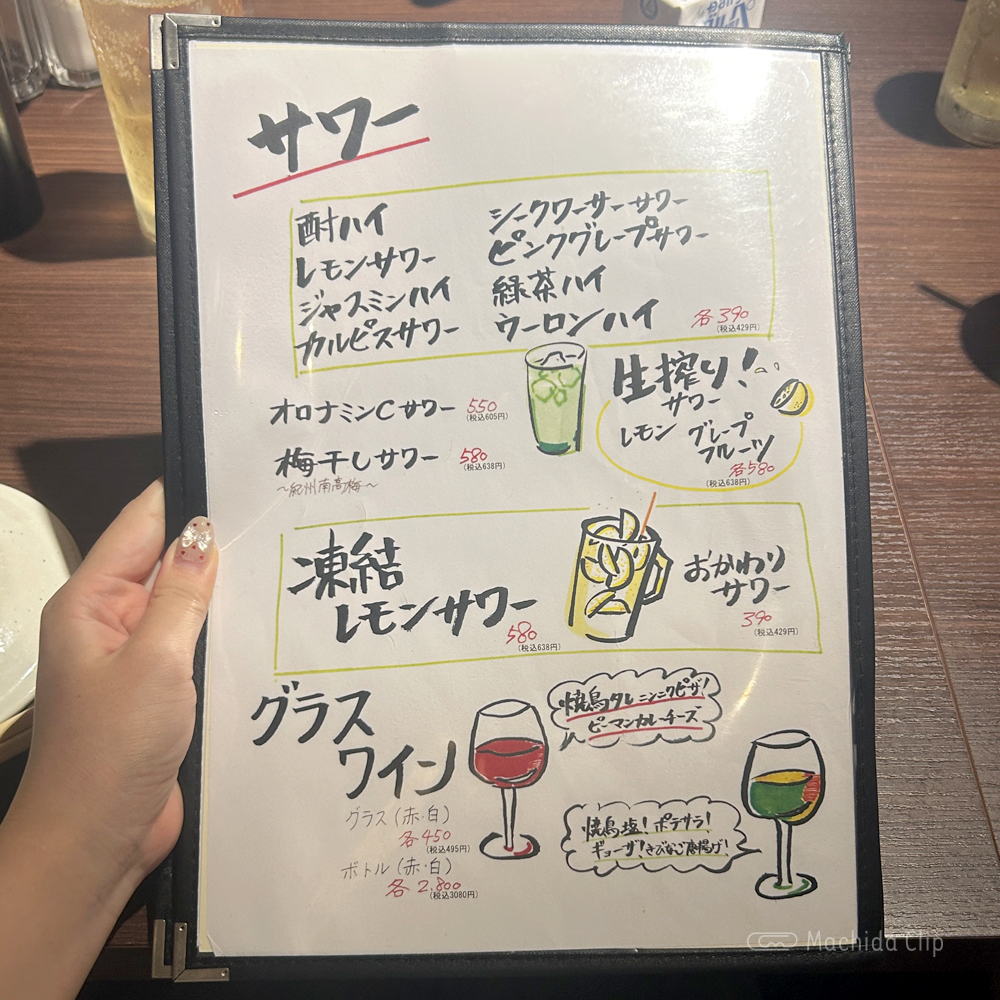 サワー
酎ハイ
レモンサワー
ジャスミンハイ
カルピスサワー
シークワーサーサワー
ピンクグレープサワー
緑茶ハイ
ウーロンハイ
各390
(税込429円)
オロナミンCサワー 550
(税込605円)
梅干しサワー 580
(税込638円)
～紀州南高梅～
生搾り!
サワー
レモン グレープ
フルーツ
各580
(税込638円)
凍結
レモンサワー
580
(税込638円)
おかわり
サワー
390
(税込429円)
グラス
ワイン
グラス(赤・白)
各450
(税込495円)
ボトル(赤・白)
各2,800
(税込3080円)
焼鳥タレ ニンニクピザ!
ピーマンカレーチーズ
焼鳥塩! ポテサラ!
ギョーザ! きびなご唐揚げ!
Machida Clip